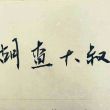 胡查大叔